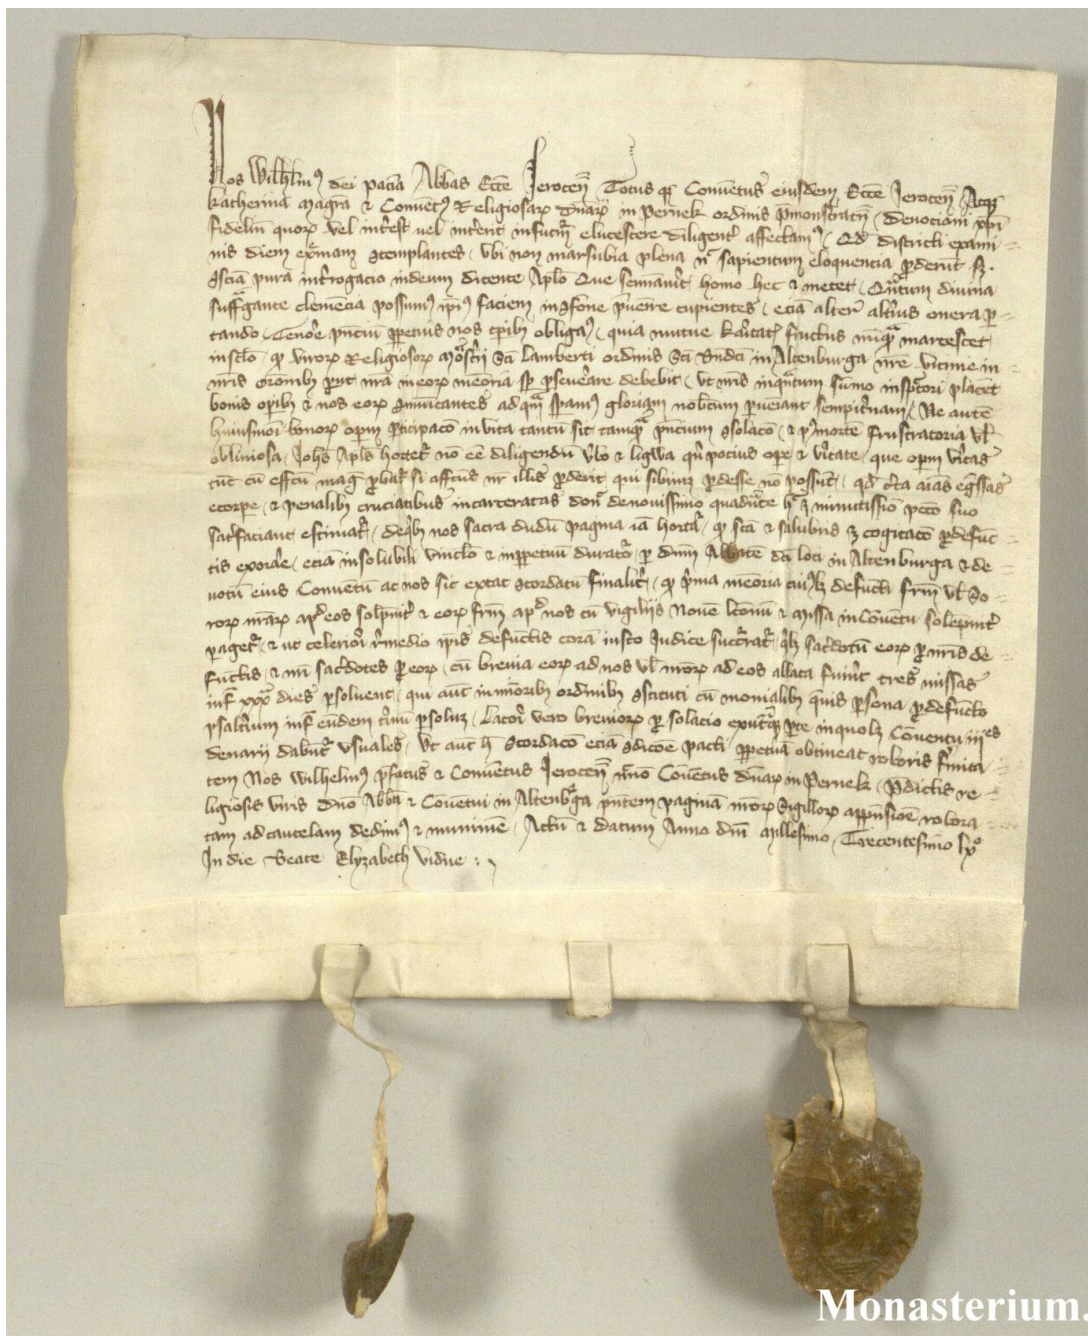 Nos Wilhelmꝰ dei pacia Abbas Eccẽ Jerocen̄ Totus qꝫ Conventus eiusdem Eccẽ Jerocen̄ Atqꝫ
katherina magr̄a ⁊ Convētꝰ Religiosaꝝ dn̄aꝝ in Pernek ordinis p̄monstratn̄ . Devotioni xp̄i
fidelium quoꝝ vel int̓est vel int̓erit in futuꝝ elucescere diligent̓ affectamꝰ . Qd̓ districti exami
nis diem ext̓mam ꝯtemplantes . Vbi non marsubia plena nec sapientum eloquencia ꝓderūt sꝫ
ꝯsciā pura int̓rogacio in deum dicente Apl̄o Que semīav̓it homo hec ⁊ metet . Qn̄tum divina
suffragante clemēcia possumꝰ ip̄iꝰ faciem in ꝯfone p̓uenire cupientes . eciā alter̓ alt̓ius onera por
tando . Tenore pn̄ciū ꝑpetuis nos tp̄ibꝫ obligamꝰ . quia mutue kar̓itat̓ fructus nūq̄ marcescet
in sclo . qꝫ viroꝝ Religiosoꝝ mōst̓ii Sc̄i Lamberti ordinis Sc̄i Bn̄dc̄i in Altenburga nr̄e vicinie in
nr̄is or̄onibꝫ ꝓut nr̄a in eoꝝ memoria sꝑ ꝑseu̓are debebit . vt nr̄is inq̄ntum sūmo insp̄cori placent
bonis op̓ibꝫ ⁊ nos eoꝝ ꝯmūicantes ad quā sp̓amꝰ gloriam nobcum ꝑueniant sempit̓nam . Ne autē
huiusmōi bonoꝝ opm̄ ꝑticipacō in vita tantū sit tamquā pn̄cium ꝯsolacō . ⁊ pꝰ mortē frustratoria vl̓
obliviosa . Joh̓s Apl̄s hortet̓ nō eē diligendū v̓bo ⁊ ligwa quī pocius ope ⁊ v̓itate . que opm̄ v̓itas
tūc cū effcū mag̓ ꝓbat̓ si affcūs nr̄ illis ꝓderit qui sibimꝫ ꝓdesse nō possūt . qd̓ cr̓ta aīas eg̓ssas
e corpe . ⁊ penalibꝫ cruciatibus incarceratas donec de novissimo quadrāte h̓ ē minutissimo pccō suo
satisfaciant estimat̓ . de quibꝫ nos sacra dudū pagina iā hortat̓ . qꝫ scā ⁊ salubris ē cogitacō ꝓ defūc
tis exorare . ecia insolubili vinclo ⁊ inꝑpetuū duratoꝝ . ꝑ dn̄m Abbatē dc̄i loci in Altenburga ⁊ de
votū eius Conventū ac nos sic extat ꝯcordatū finalit̓ . qꝫ pr̓ma mēoria cuiꝰlꝫ defūcti frīs vl̓ So
roꝝ nr̄aꝝ apd̓ eos solpnit̓ ⁊ eoꝝ frm̄ apd̓ nos cū vigiliis Novē lcōnū ⁊ missa in Cōventu solepnit̓
ꝑaget̓ . ⁊ ut celeriori r̓medio ip̄is defūctis corā iusto Judice succurrat̓ . qlꝫ sac̓dotū eoꝝ ꝓ nr̄is de
fūctis . ⁊ nr̄i sac̓dotes ꝓ eoꝝ . cū brevia eoꝝ ad nos vl̓ nr̄oꝝ ad eos allata fuerīt tres missas
inf̓ xxx dies ꝑsoluent . qui aūt in mīoribꝫ ordinibꝫ ꝯstituti cū monialibꝫ quevis ꝑsona ꝓ defūcto
psalt̓ium inf̓ eūdem t̓minū ꝑsoluꝫ . Latori vero brevioꝝ ꝓ solacio ex utqꝫ ꝑte in quolꝫ Cōventu iiies
denarii dabūt̓ vsuales . Vt aut h̓ ꝯcordacō eciā ꝯdicōe pacti ꝑpetuā obtineat roboris firmita
tem Nos Wilhelmus p̄fatus ⁊ Cōvētus Jerocen̄ n̄nō Cōvētus dn̄aꝝ in Pernek . p̄dictis re
ligiosis viris dn̄o Abbti ⁊ Cōvetui in Altenburga pn̄tem paginā nr̄oꝝ Sigilloꝝ appn̄sioē robora
tam ad cautelam dedimꝰ ⁊ munimē . Actū ⁊ datum Anno dn̄i Millesimo . Trecentesimo lxº
In die Beate Elyzabeth vidue .
Monasterium.